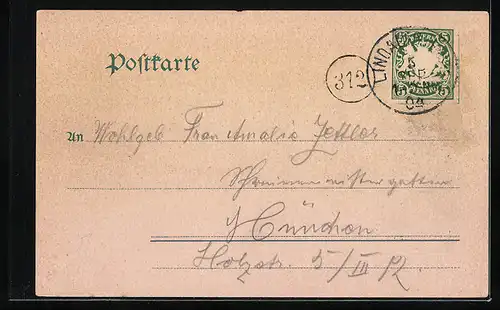 Postkarte
312
LINDAU
5 SEP
04
BAYERN
5 5
PFENNIG
An Wohlgeb Frau Amalie Zettler
Schreinermeistergattin
München
Holzstr. 5/III R